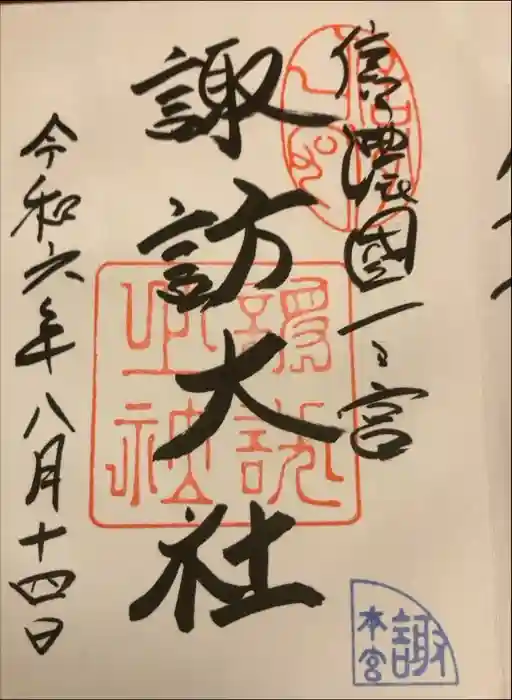 信濃國一之宮
諏訪大社
令和六年八月十四日
諏
本宮